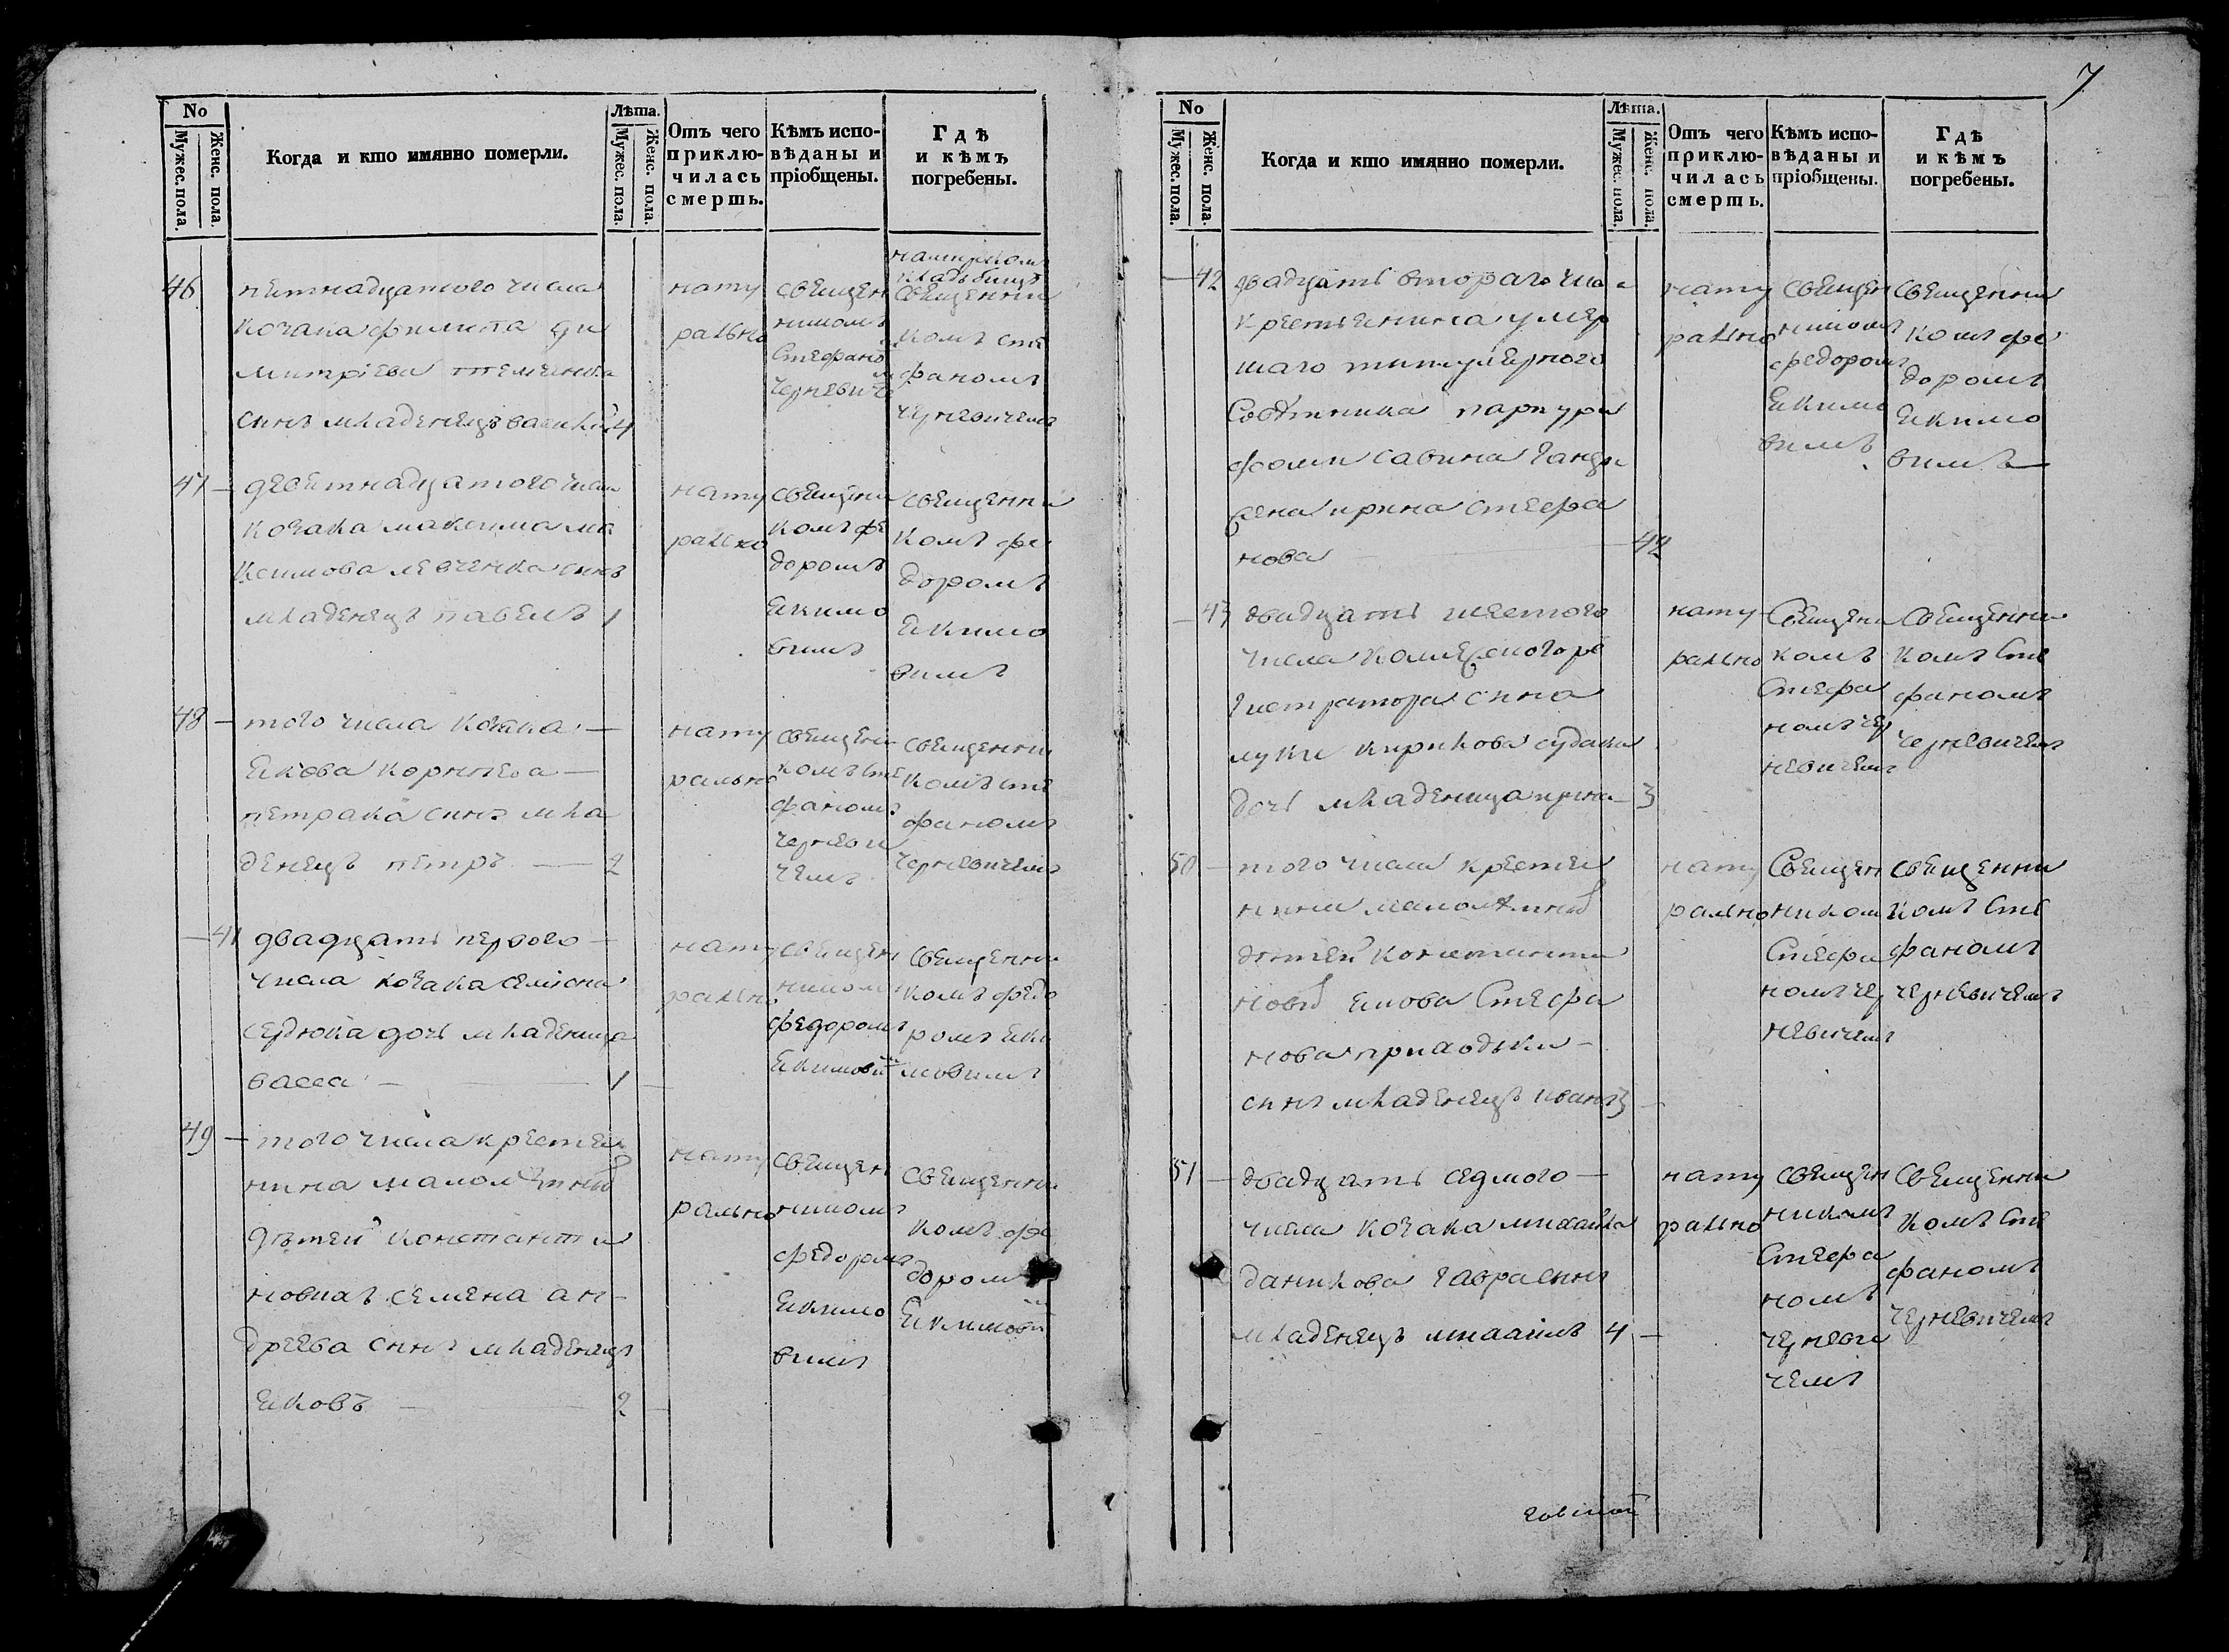 7
No
Мужес. пола.
Женс. пола.
Когда и кто имянно померли.
Лѣта.
Мужес. пола.
Женс. пола.
Отъ чего
приклю-
чилась
смерть.
Кѣмъ испо-
вѣданы и
пріобщены.
Гдѣ
и кѣмъ
погребены.
46
козака филипа ди
митріева
синъ младенецъ василій 4
нату
рално
священ
никомъ
Стефано
м
Черневиче
священни
комъ сте
фаномъ
Черневичемъ
47 — девятнадцатого числа
козака максима ма
ксимова левченка синъ
младенецъ павелъ 1
нату
рално
священни
комъ фе
доромъ
Якимо
вимъ
священни
комъ фе
доромъ
Якимо
вимъ
48 — того числа козака —
Якова корнѣева —
петрака синъ мла
денецъ петръ — 2
нату
рально
священи
комъ сте
фаномъ
Черневи
чемъ
священни
комъ сте
фаномъ
Черневичемъ
— 41 двадцать первого —
числа козака семіона
сердюка дочь младеница
васса — 1
нату
рално
священ
никомъ
федоромъ
Якимови
м
священни
комъ федо
ромъ Яки
мовимъ
49 — того числа крестья
нина малолѣтнихъ
дѣтей константи
новихъ семена ан-
дреева синъ младенецъ
Яковъ — 2
нату
рально
священ
никомъ
федоромъ
Якимо
вимъ
священни
комъ фе
доромъ
Якимови
м
No
Мужес. пола.
Женс. пола.
Когда и кто имянно померли.
Лѣта.
Мужес. пола.
Женс. пола.
Отъ чего
приклю-
чилась
смерть.
Кѣмъ испо-
вѣданы и
пріобщены.
Гдѣ
и кѣмъ
погребены.
— 42 двадцать второго числа
крестьянина умер
шаго титулярного
Совѣтника парпури
фоми савина
жена ирина стефа
нова — 42
нату
рално
священ
никомъ
федоромъ
Якимо
вимъ
священни
комъ фе
доромъ
Якимо
вимъ
— 43 двадцать шестого
числа коллежского ре
гистратора сина
луки кирилова судака
дочь младеница ирина — 3
нату
рально
Священи
комъ
Стефа
номъ Чер
невичемъ
Священни
комъ Сте
фаномъ
Черневичемъ
50 — того числа крестья
нина малолѣтнихъ
дѣтей константи
новихъ Якова Стефа
нова приходьки —
синъ младенецъ иванъ 3 —
нату
рально
Священ
никомъ
Стефа
номъ Чер
невичемъ
священни
комъ Сте
фаномъ
Черневичемъ
51 — двадцать седмого —
числа козака михайла
данилова гавра синъ
младенецъ михаилъ 4 —
нату
рално
священ
никомъ
Стефа
номъ
Черневи
чемъ
Священни
комъ Сте
фаномъ
Черневичемъ